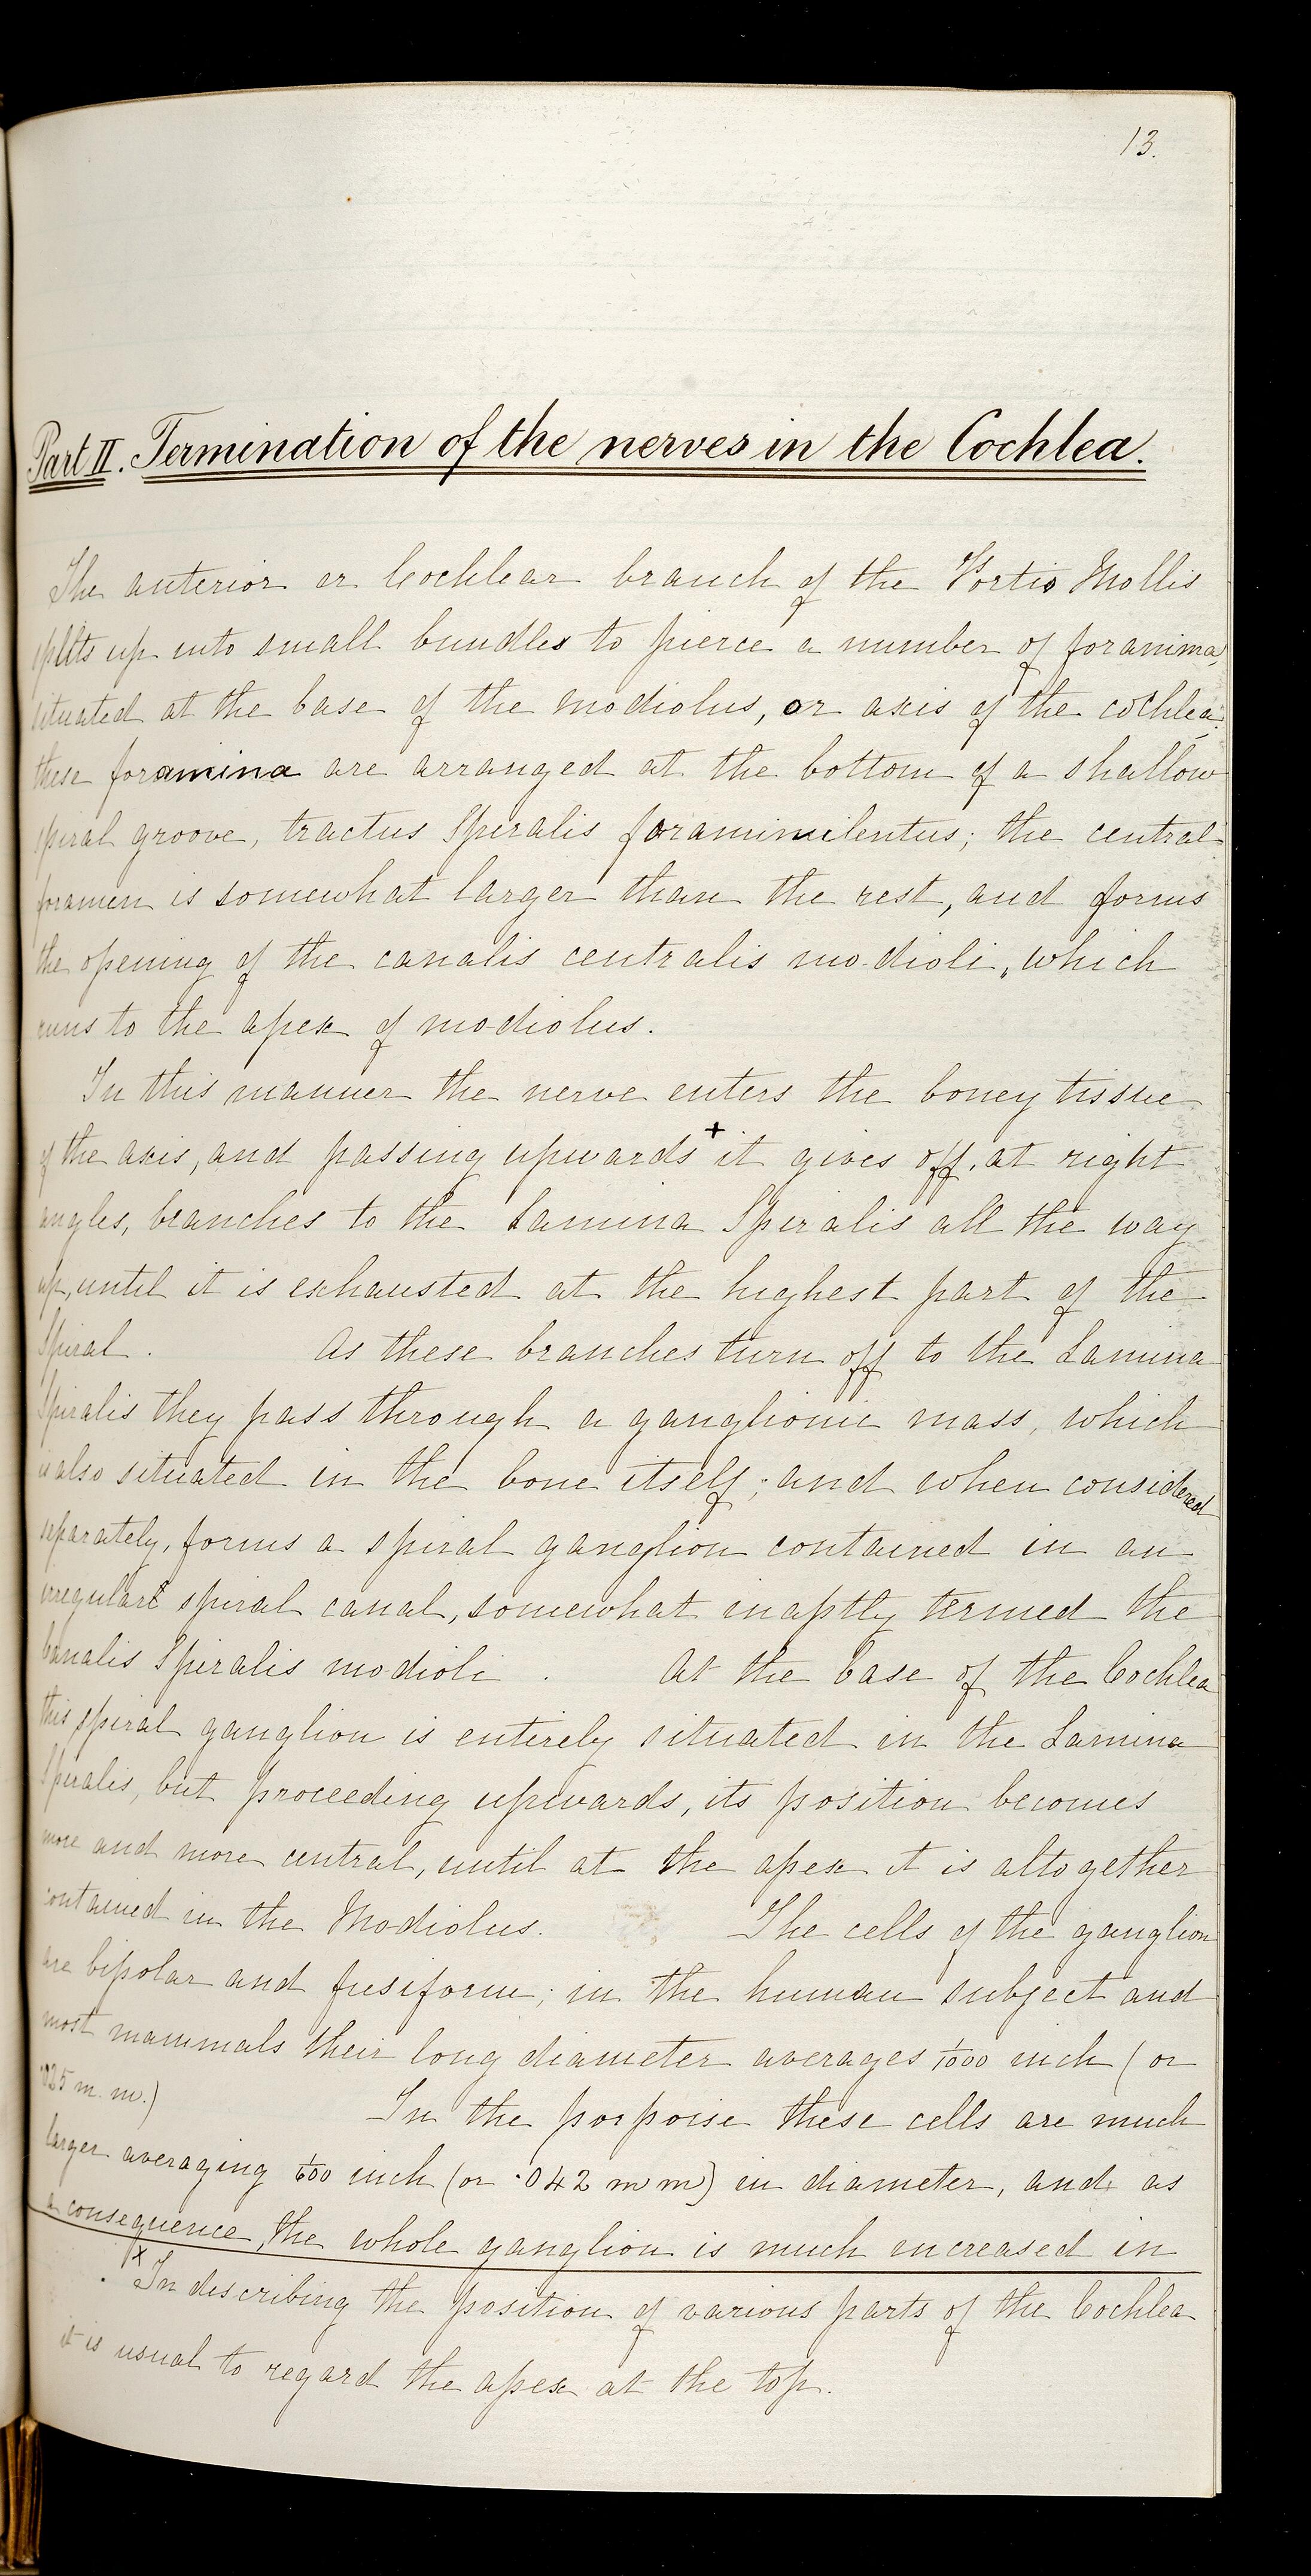 13.
Part II. Termination of the nerves in the Cochlea.
The anterior or Cochlear branch of the Portio Mollis
splits up into small bundles to pierce a number of foramina,
situated at the base of the modiolus, or axis of the cochlea:
these foramina are arranged at the bottom of a shallow
spiral groove, tractus spiralis foraminulentus; the central
foramen is somewhat larger than the rest, and forms
the opening of the canalis centralis modioli, which
runs to the apex of modiolus.
In this manner the nerve enters the boney tissue
of the axis, and passing upwards + it gives off, at right
angles, branches to the Lamina Spiralis all the way
up, until it is exhausted at the highest part of the
Spiral. As these branches turn off to the Lamina
Spiralis they pass through a ganglionic mass, which
is also situated in the bone itself; and when considered
separately, forms a spiral ganglion contained in an
irregular spiral canal, somewhat inaptly termed the
Canalis Spiralis modioli. At the base of the Cochlea
this spiral ganglion is entirely situated in the Lamina
Spiralis, but proceeding upwards, its position becomes
more and more central, until at the apex it is altogether
contained in the Modiolus. The cells of the ganglion
are bipolar and fusiform; in the human subject and
most mammals their long diameter averages 1/1000 inch (or
·025 m.m.) In the porpoise these cells are much
larger averaging 1/600 inch (or ·042 m m) in diameter, and as
a consequence, the whole ganglion is much increased in
x In describing the position of various parts of the Cochlea
it is usual to regard the apex at the top.